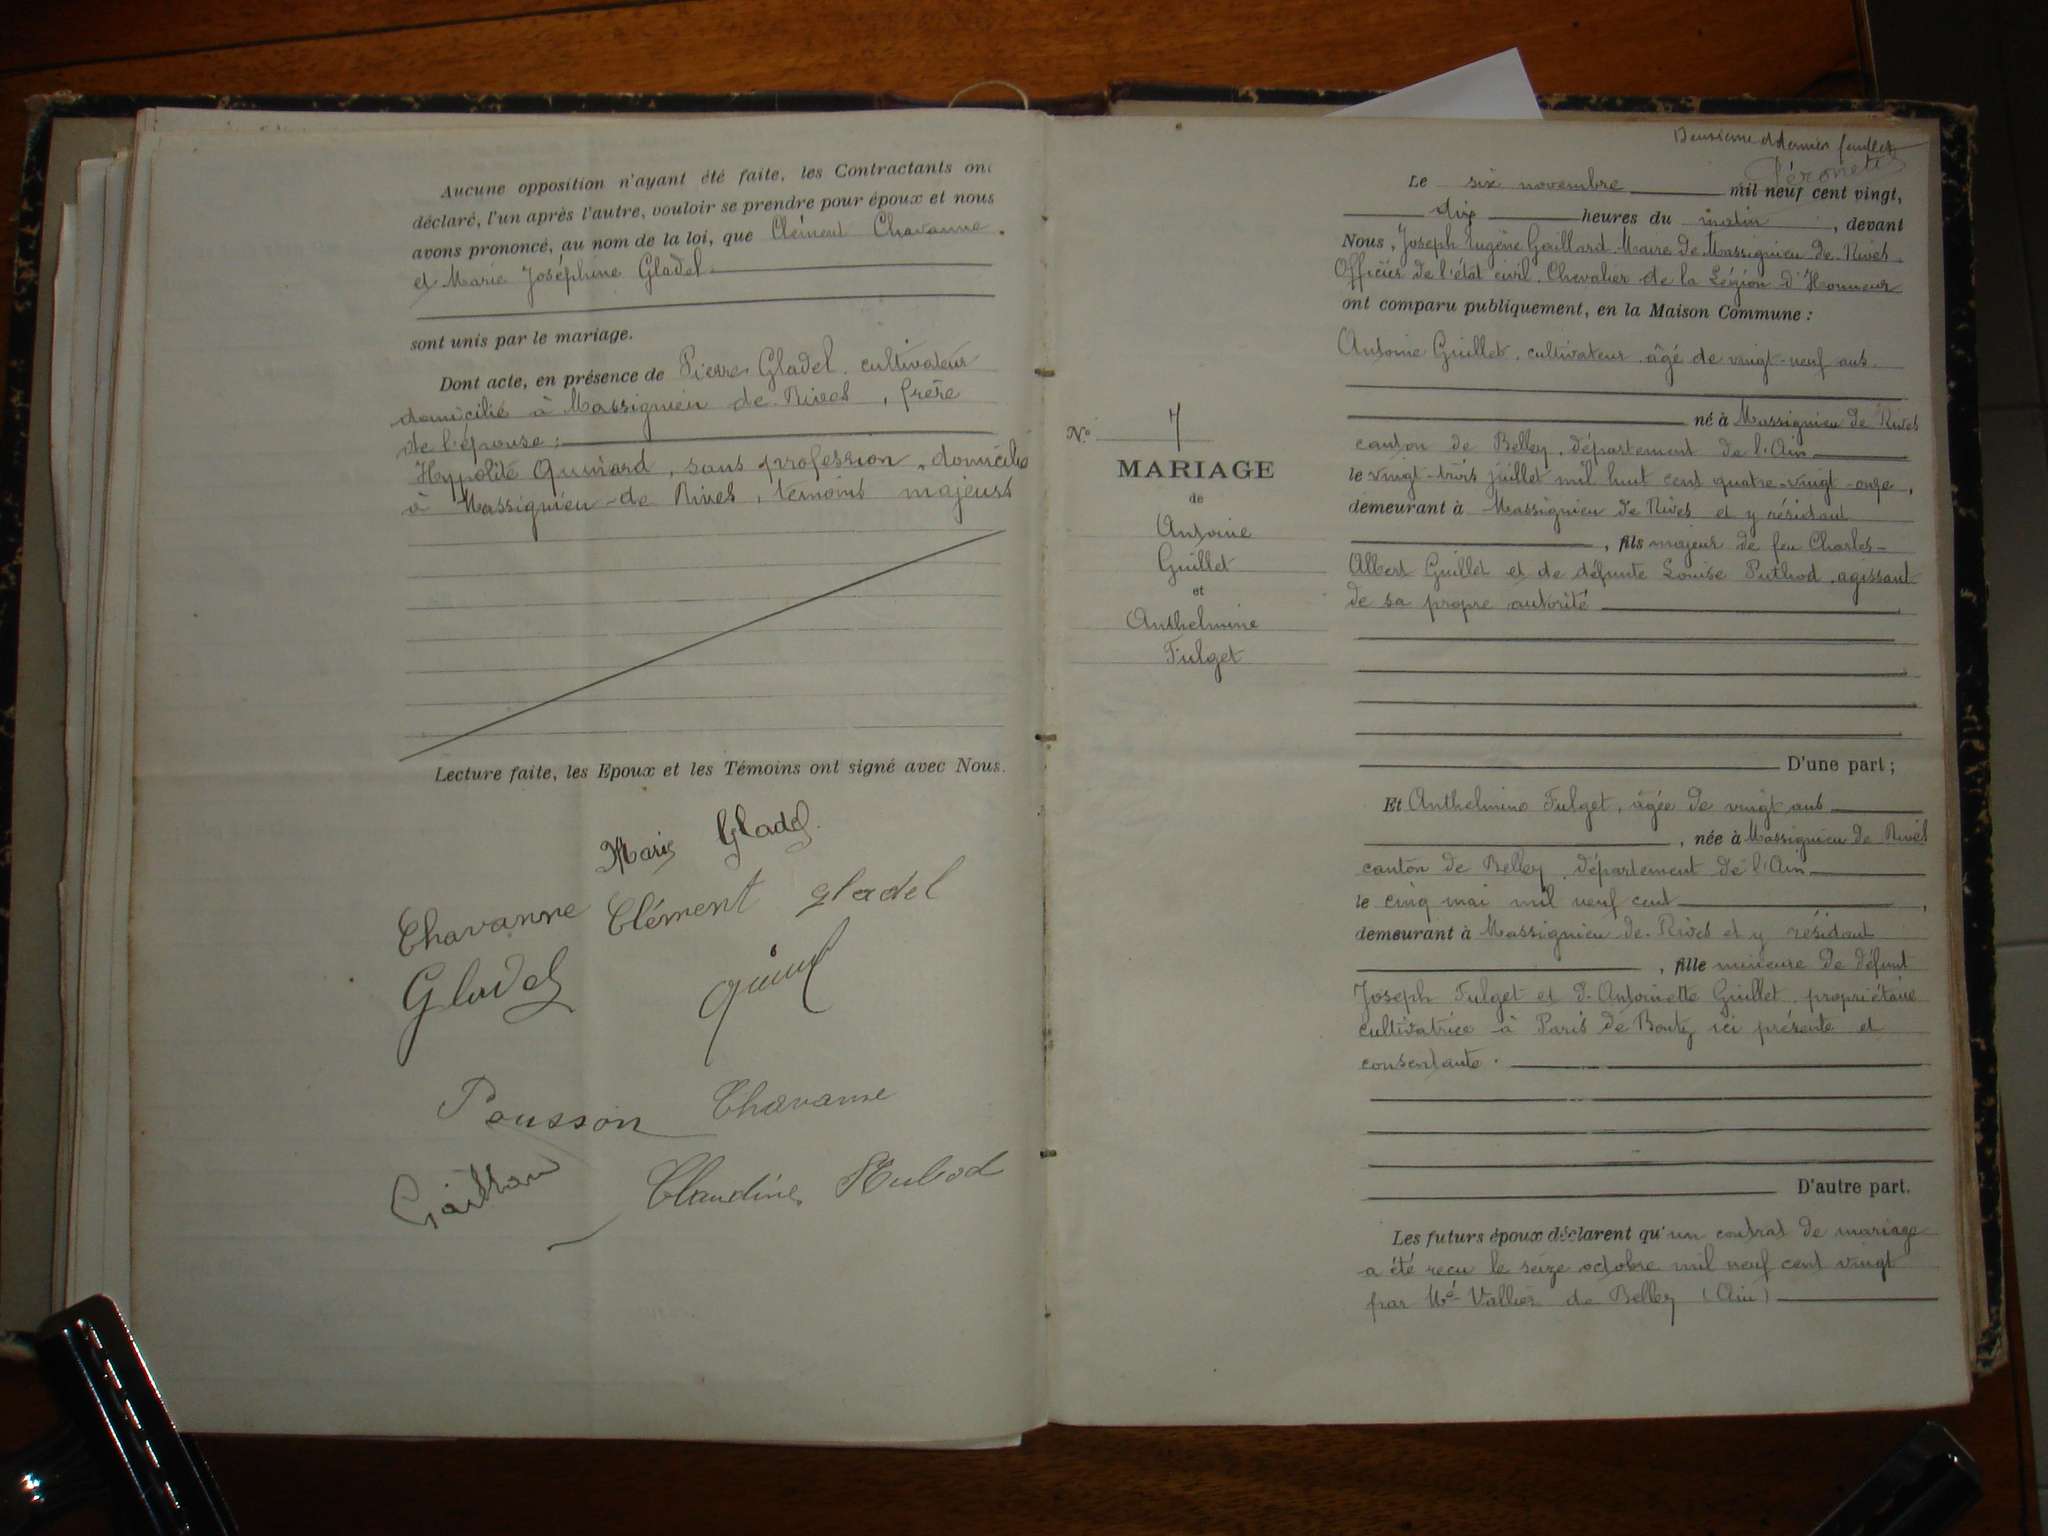 Aucune opposition n'ayant été faite, les Contractants ont
déclaré, l'un après l'autre, vouloir se prendre pour époux et nous
avons prononcé, au nom de la loi, que Clément Chavanne.
et Marie Joséphine Gladel
sont unis par le mariage.
Dont acte, en présence de Pierre Gladel. cultivateur
domicilié à Massignieu de Rives, frère
de l'épouse;
Hypolite Quinard, sans profession, domicilié
à Massignieu-de Rives, témoins majeurs
Lecture faite, les Epoux et les Témoins ont signé avec Nous.
Marie Gladel
Chavanne Clément Gladel
Gladel
Pousson Chavanne
Gaillard Claudine
Deuxième et dernier feuillet
Le six novembre mil neuf cent vingt,
dix heures du matin, devant
Nous, Joseph Eugène Gaillard. Maire de Massignieu de Rives.
Officier de l'état civil. Chevalier de la Légion d'Honneur
ont comparu publiquement, en la Maison Commune :
Antoine Guillet, cultivateur. âgé de vingt-neuf ans.
né à Massignieu de Rives
canton de Belley, département de l'Ain
le vingt-trois juillet mil huit cent quatre-vingt-onze,
demeurant à Massignieu de Rives et y résidant
, fils majeur de feu Charles-
Albert Guillet et de défunte Louise Puthod. agissant
de sa propre autorité
N° 7
MARIAGE
de
Antoine
Guillet
et
Anthelmine
Fulget
D'une part ;
Et Anthelmine Fulget, âgée de vingt ans
, née à Massignieu de Rives
canton de Belley, département de l'Ain
le cinq mai mil neuf cent ,
demeurant à Massignieu de Rives et y résidant
, fille mineure de défunt
Joseph Fulget et d'Antoinette Guillet, propriétaire
cultivatrice à Paris de Boutz ici présente et
consentante.
D'autre part.
Les futurs époux déclarent qu'un contrat de mariage
a été recu le seize octobre mil neuf cent vingt
par Me Vallier de Belley (Ain)